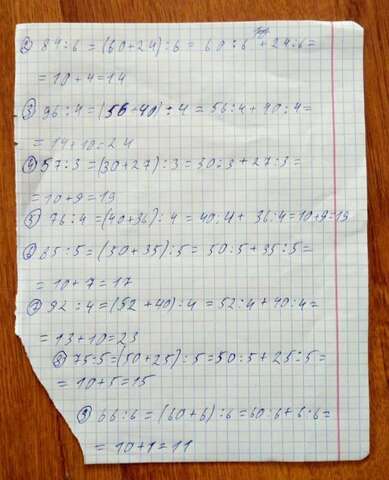 ② 84:6=(60+24):6= 60:6+24:6=
=10+4=14
③ 96:4=(56+40):4=56:4+40:4=
=14+10=24
④ 57:3=(30+27):3=30:3+27:3=
=10+9=19
⑤ 76:4=(40+36):4=40:4+36:4=10+9=19
⑥ 85:5=(50+35):5=50:5+35:5=
=10+7=17
⑦ 92:4=(52+40):4=52:4+40:4=
=13+10=23
⑧ 75:5=(50+25):5=50:5+25:5=
=10+5=15
⑨ 66:6=(60+6):6=60:6+6:6=
=10+1=11